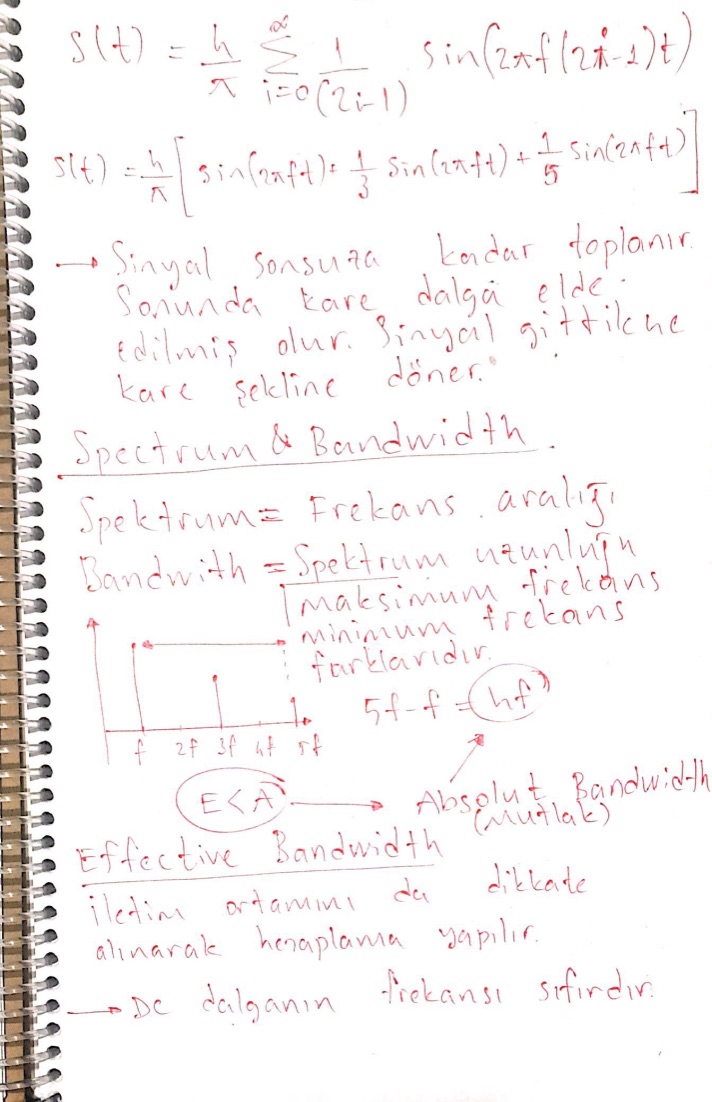 S(t) = 4/π ∞ Σ i=0 1/(2i-1) sin(2πf(2i-1)t)
S(t) = 4/π [ sin(2πft) + 1/3 sin(2πft) + 1/5 sin(2πft) ]
→ Sinyal sonsuza kadar toplanır.
Sonunda kare dalga elde
edilmiş olur. Sinyal gittikçe
kare şekline döner.
Spectrum & Bandwidth.
Spektrum = Frekans aralığı
Bandwith = Spektrum uzunluğu
maksimum frekans
minimum frekans
farklarıdır.
5f-f = 4f
f 2f 3f 4f 5f
E<A → Absolut Bandwidth
(Mutlak)
Effective Bandwidth
iletim ortamını da dikkate
alınarak hesaplama yapılır.
→ DC dalganın frekansı sıfırdır.